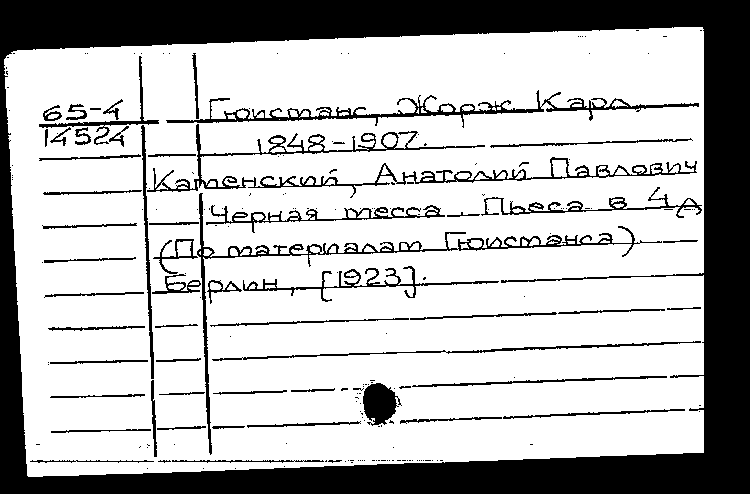 65-4
14524
Гюисманс, Жорж Карл,
1848-1907.
Каменский, Анатолий Павлович
Черная месса. Пьеса в 4 д
(По материалам Гюисманса)
Берлин, [1923].